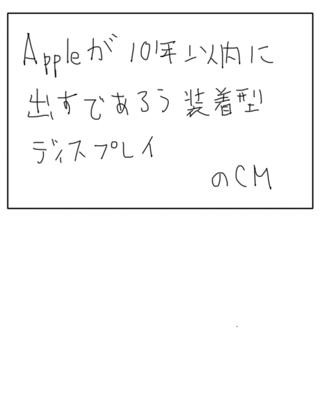 Appleが10年以内に
出すであろう装着型
ディスプレイ
のCM